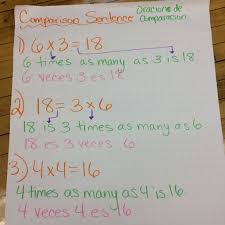 Comparison Sentence
Oraciones de
Comparación
1) 6 x 3 = 18
6 times as many as 3 is 18.
6 veces 3 es 18
2) 18 = 3 x 6
18 is 3 times as many as 6
18 es 3 veces 6
3) 4 x 4 = 16
4 times as many as 4 is 16.
4 veces 4 es 16